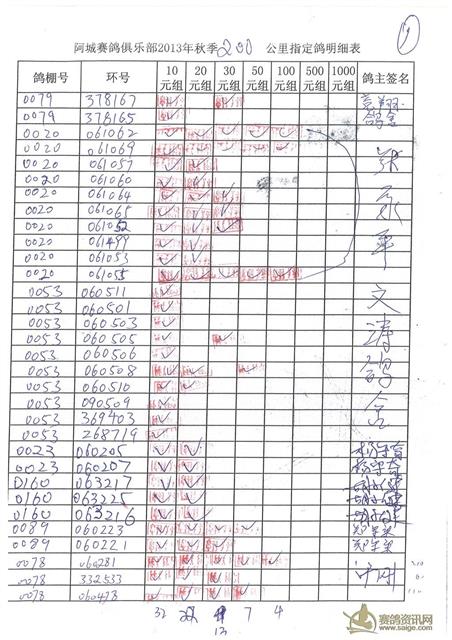 阿城赛鸽俱乐部2013年秋季200 公里指定鸽明细表
鸽棚号 环号 10元组 20元组 30元组 50元组 100元组 500元组 1000元组 鸽主签名
0079 378167
0079 378165 鸽舍
0020 061062
0020 061069
0020 061057
0020 061060
0020 061064
0020 061065
0020 061052
0020 061499
0020 061053
0020 061055
0053 060511 文
0053 060501
0053 060503 涛
0053 060505
0053 060506 鸽
0053 060508
0053 060510 舍
0053 090509
0053 369403
0053 268719
0023 060205
0023 060207
0160 063217
0160 063225
0160 063216
0089 060223
0089 060221
0078 060281
0078 332533
0078 060478
32 22 13 7 4
赛鸽资讯网
www.saige.com